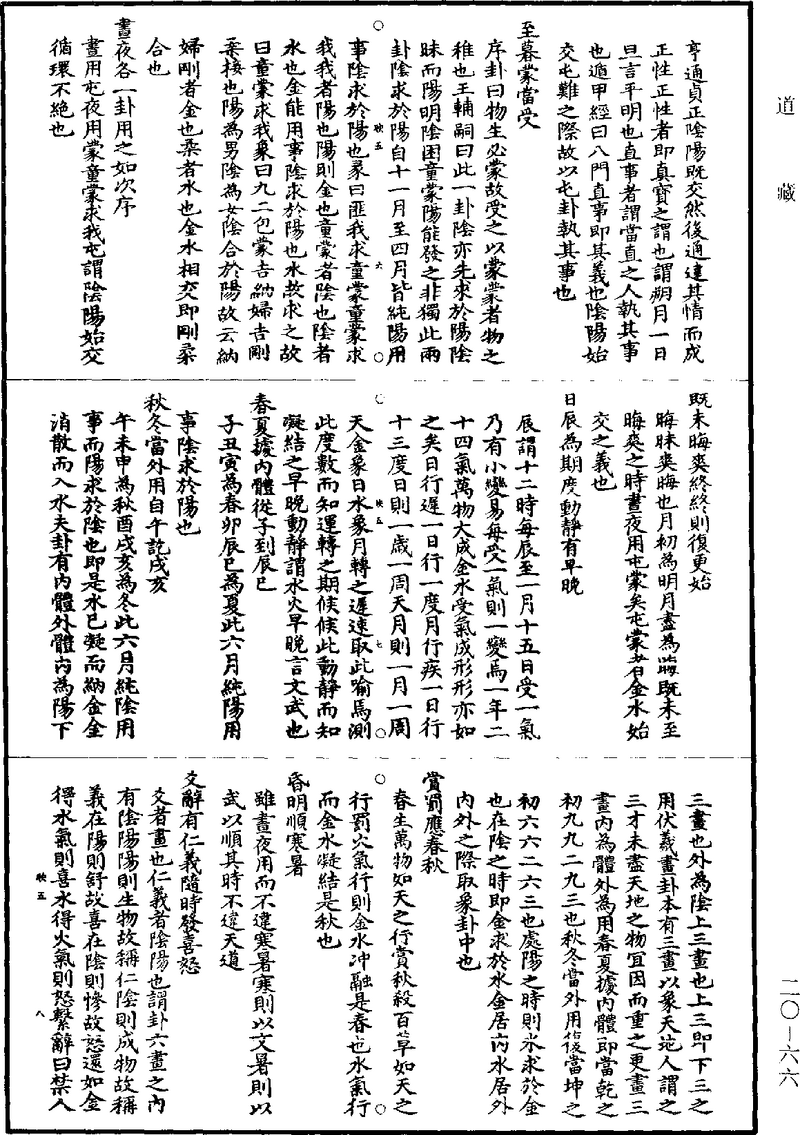 道藏
亨通貞正陰陽既交然後通達其情而成
正性正性者即真寶之謂也謂朔月一日
旦言平明也直事者謂當直之人執其事
也遁甲經曰八門直事即其義也陰陽始
交屯難之際故以屯卦執其事也
至暮蒙當受
序卦曰物生必蒙故受之以蒙蒙者物之
稚也王輔嗣曰此一卦陰亦先求於陽陰
昧而陽明陰困童蒙陽能發之非獨此兩
卦陰求於陽自十一月至四月皆純陽用
事陰求於陽也彖曰匪我求童蒙童蒙求
我我者陽也陽則金也童蒙者陰也陰者
水也金能用事陰求於陽也水故求之故
曰童蒙求我象曰九二包蒙吉納婦吉剛
柔接也陽為男陰為女陰合於陽故云納
婦剛者金也柔者水也金水相交即剛柔
合也
晝夜各一卦用之如次序
晝用屯夜用蒙童蒙求我屯謂陰陽始交
循環不絕也
既未晦爽終終則復更始
晦昧爽晦也月初為明月盡為晦既未至
晦爽之時晝夜用屯蒙矣屯蒙者金水始
交之義也
日辰為期度動靜有早晚
辰謂十二時每辰至一月十五日受一氣
乃有小變易每受一氣則一變焉一年二
十四氣萬物大成金水受氣成形形亦如
之矣日行遲一日行一度月行疾一日行
十三度日則一歲一周天月則一月一周
天金象日水象月轉之遲速取此喻焉測
此度數而知運轉之期候候此動靜而知
凝結之早晚動靜謂水火早晚言文武也
春夏據內體從子到辰巳
子丑寅為春卯辰巳為夏此六月純陽用
事陰求於陽也
秋冬當外用自午訖戌亥
午未申為秋酉戌亥為冬此六月純陰用
事而陽求於陰也即是水巳凝而納金金
消散而入水夫卦有內體外體內為陽下
三畫也外為陰上三畫也上三即下三之
用伏羲畫卦本有三畫以象天地人謂之
三才未盡天地之物宜因而重之更畫三
畫內為體外為用春夏據內體即當乾之
初九九二九三也秋冬當外用復當坤之
初六六二六三也處陽之時則水求於金
也在陰之時即金求於水金居內水居外
內外之際取象卦中也
賞罰應春秋
春生萬物如天之行賞秋殺百草如天之
行罰火氣行則金水沖融是春也水氣行
而金水凝結是秋也
昏明順寒暑
雖晝夜用而不違寒暑寒則以文暑則以
武以順其時不違天道
爻辭有仁義隨時發喜怒
爻者畫也仁義者陰陽也謂卦六畫之內
有陰陽陽則生物故稱仁陰則成物故稱
義在陽則舒故喜在陰則慘故怒還如金
得水氣則喜水得火氣則怒繫辭曰禁人
映五 六
映五 七
映五 八
二〇—六六